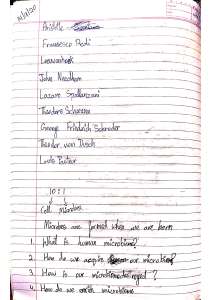 Aristotle
Francesco Redi
Leeuwenhoek
John Needham
Lazaro Spallanzani
Theodore Schwann
George Friedrich Schroder
Theodor von Dusch
Louis Pasteur
10:1
Cell microbes
Microbes are formed when we are born
1. What is human microbiome?
2. How do we acquire our microbiome?
3. How is our microbiome
4. How do we